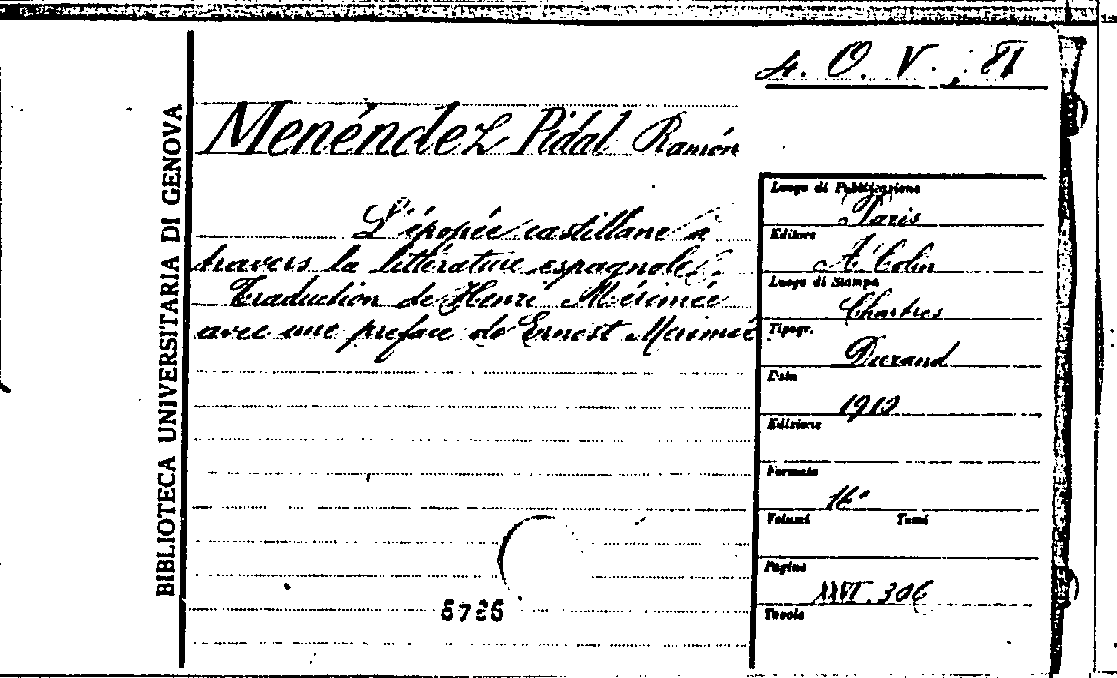 4. O. V. 81
BIBLIOTECA UNIVERSITARIA DI GENOVA
Menéndez Pidal Ramón
L'épopée castillane a
travers la littérature espagnole.
Traduction de Henri Mérimée
avec une preface de Ernest Merimée
Luogo di Pubblicazione
Paris
Editore
A. Colin
Luogo di Stampa
Chartres
Tipogr.
Durand
Data
1910
Edizione
Formato
16°
Volumi Tomi
Pagine
XXVI. 306
Tavole
5725